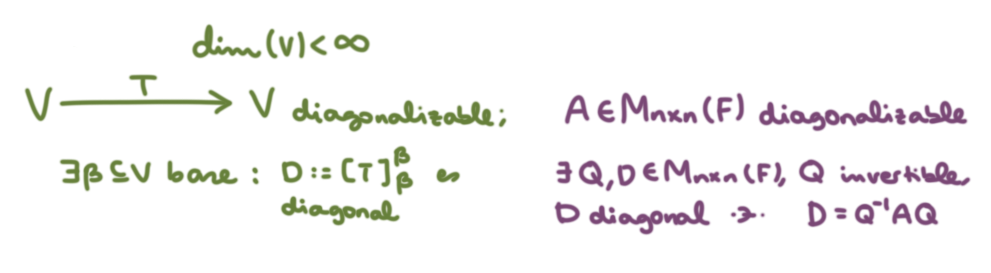 dim(V) < ∞
V —T→ V diagonalizable;
∃β ⊆ V base : D := [T]_β^β es
diagonal
A ∈ M_{n×n}(F) diagonalizable
∃ Q, D ∈ M_{n×n}(F), Q invertible,
D diagonal ·∋· D = Q⁻¹AQ